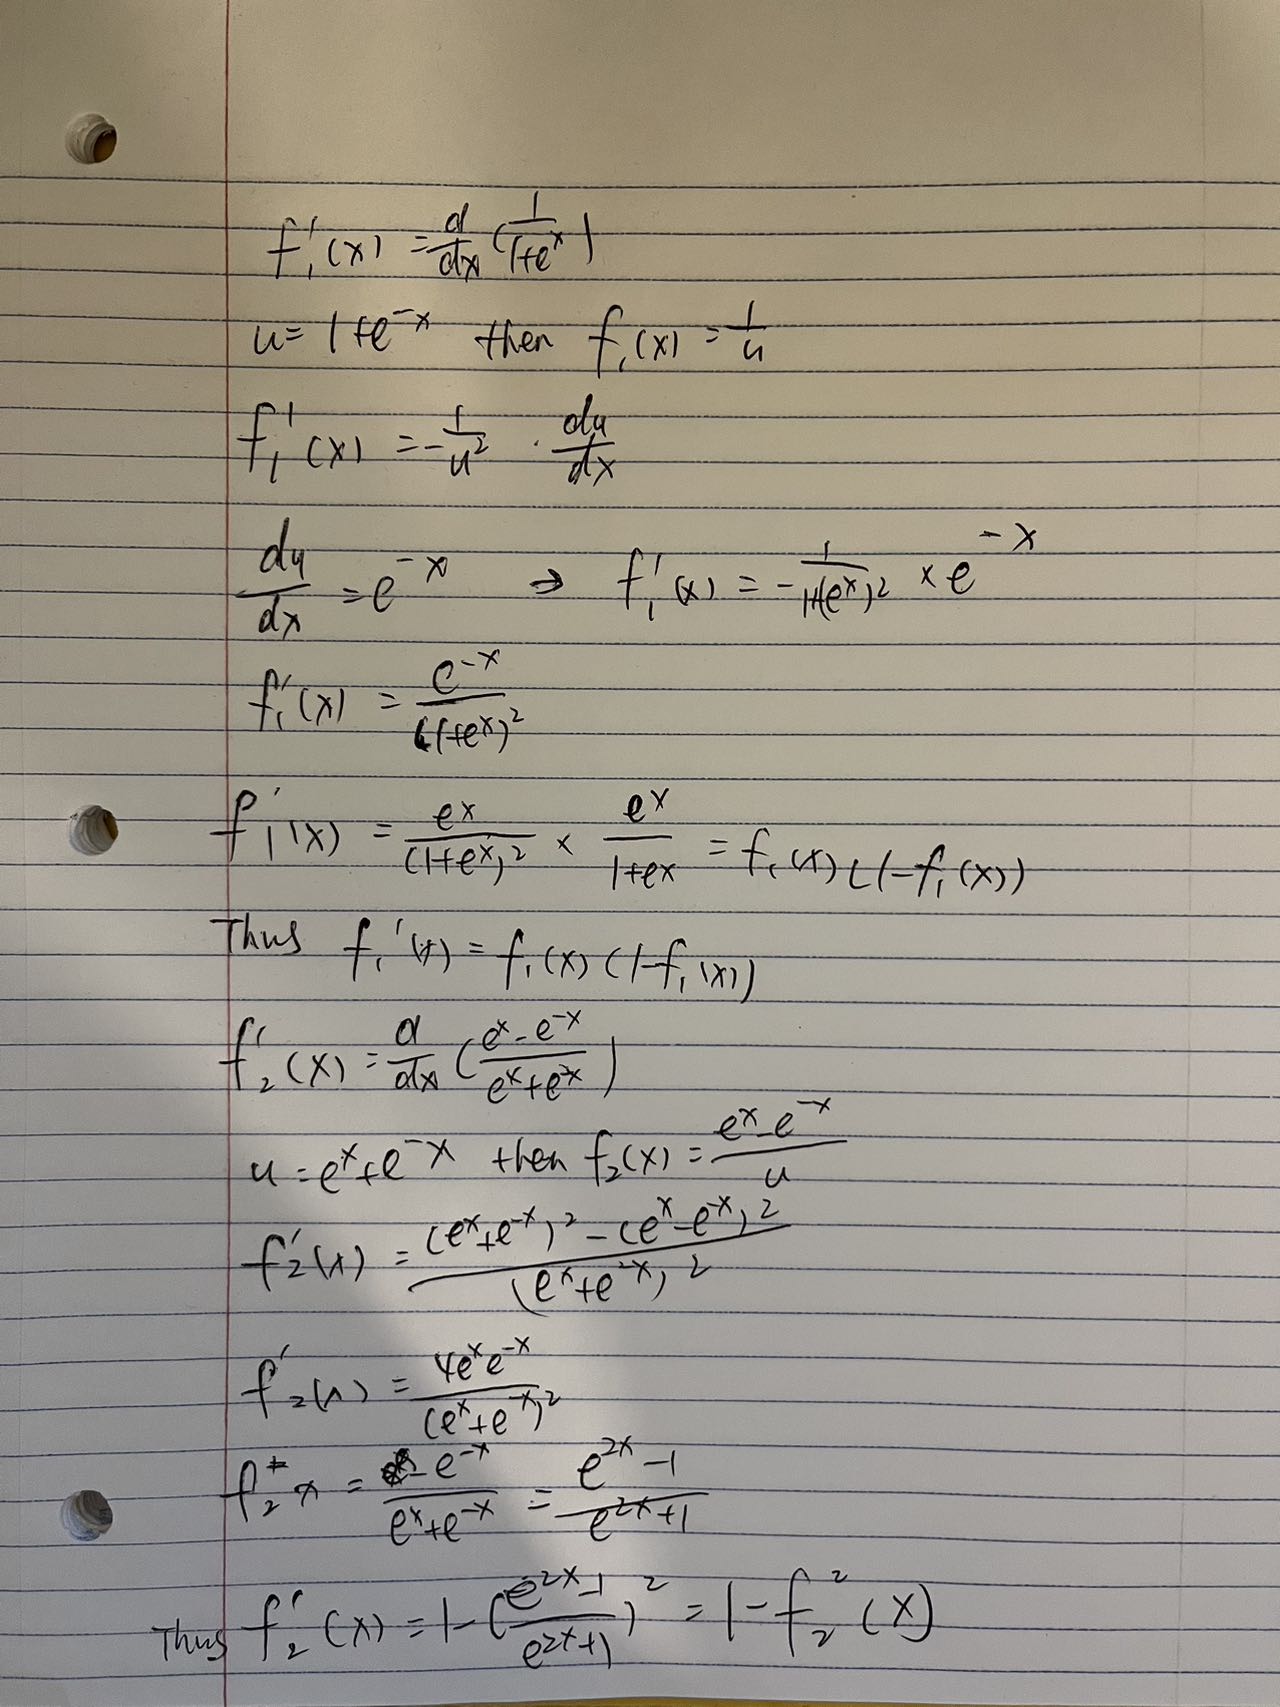 f₁'(x) = d/dx (1/(1+eˣ))
u = 1+e⁻ˣ then f₁(x) = 1/u
f₁'(x) = -1/u² · du/dx
du/dx = e⁻ˣ ⇒ f₁'(x) = -1/(1+(eˣ)²) × e⁻ˣ
f₁'(x) = e⁻ˣ/((1+eˣ)²)
f₁'(x) = eˣ/(1+eˣ)² × eˣ/(1+eˣ) = f₁(x)(1-f₁(x))
Thus f₁'(x) = f₁(x)(1-f₁(x))
f₂'(x) = d/dx ((eˣ-e⁻ˣ)/(eˣ+e⁻ˣ))
u = eˣ+e⁻ˣ then f₂(x) = (eˣ-e⁻ˣ)/u
f₂'(x) = ((eˣ+e⁻ˣ)²-(eˣ-e⁻ˣ)²)/(eˣ+e⁻ˣ)²
f₂'(x) = 4eˣe⁻ˣ/(eˣ+e⁻ˣ)²
f₂ x = (eˣ-e⁻ˣ)/(eˣ+e⁻ˣ) = (e²ˣ-1)/(e²ˣ+1)
Thus f₂'(x) = 1-((e²ˣ-1)/(e²ˣ+1))² = 1-f₂²(x)